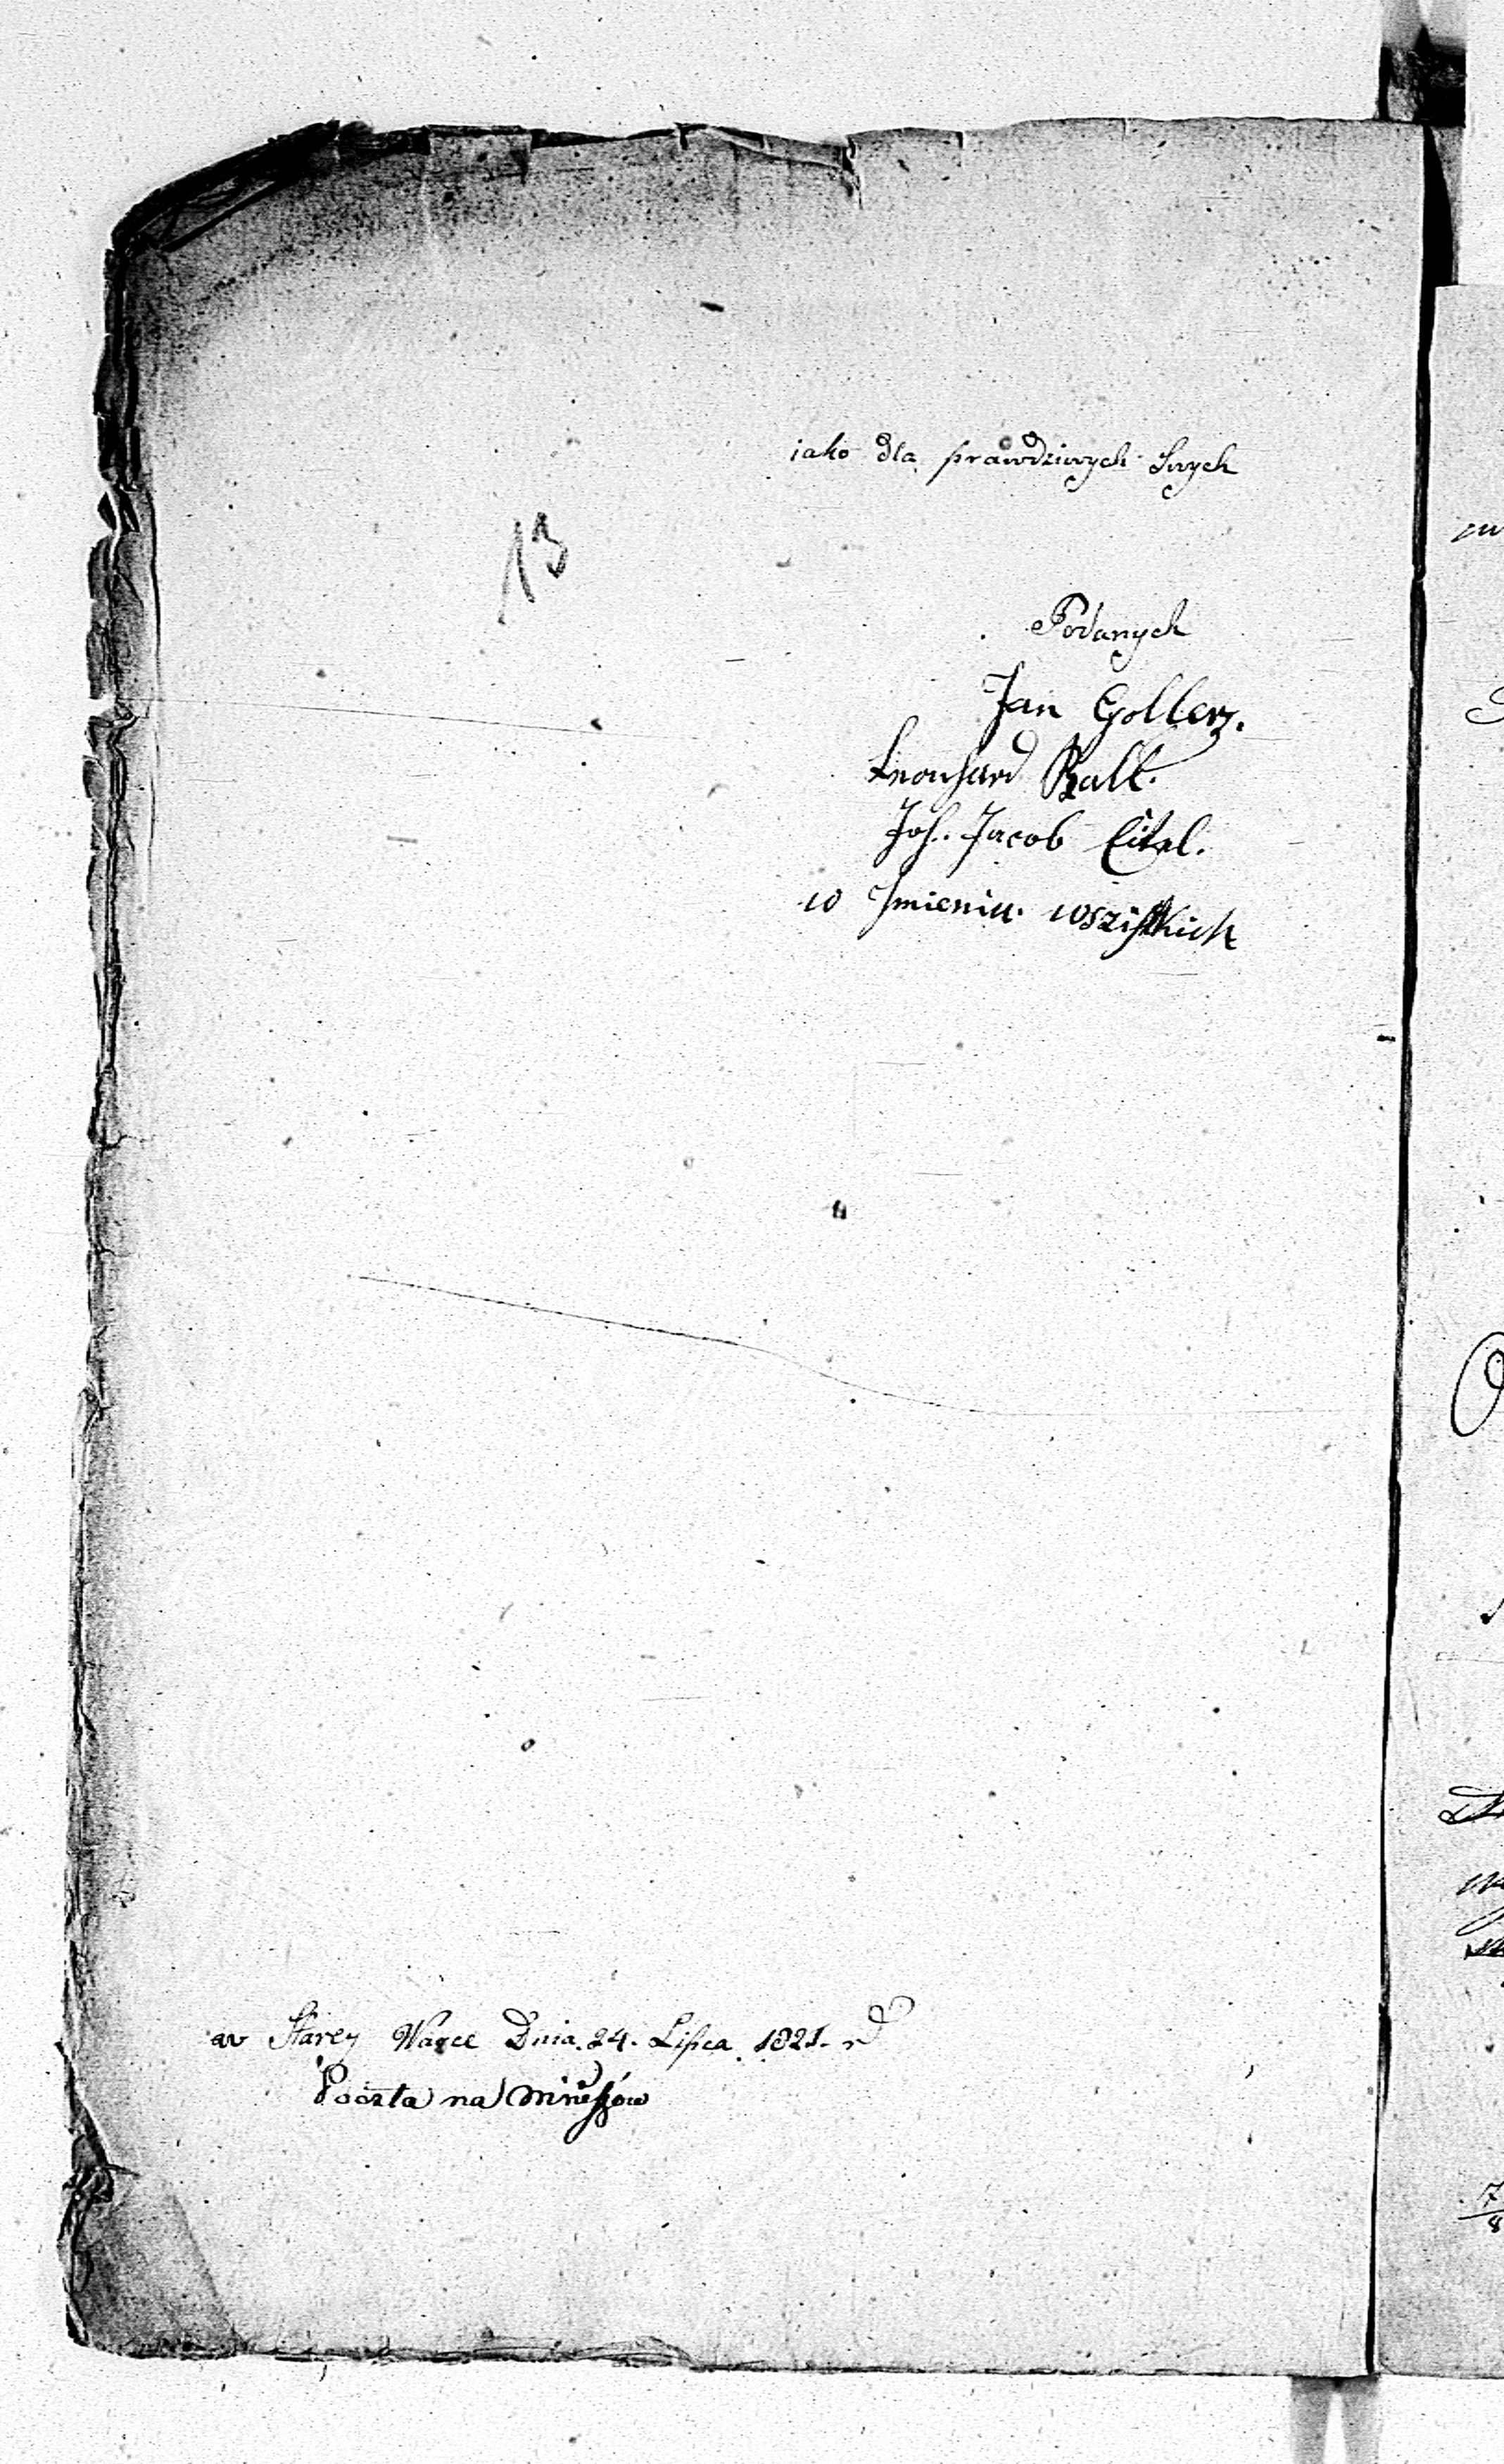 iako dla prawdziwych Swych
13
Podanych
Jan Gollerz.
Leonhard Balt.
Joh. Jacob Eitel.
w Jmieniu wszistkich
w Starey Warce Dnia 24. Lipca 1821. r
Poczta na Mniszów